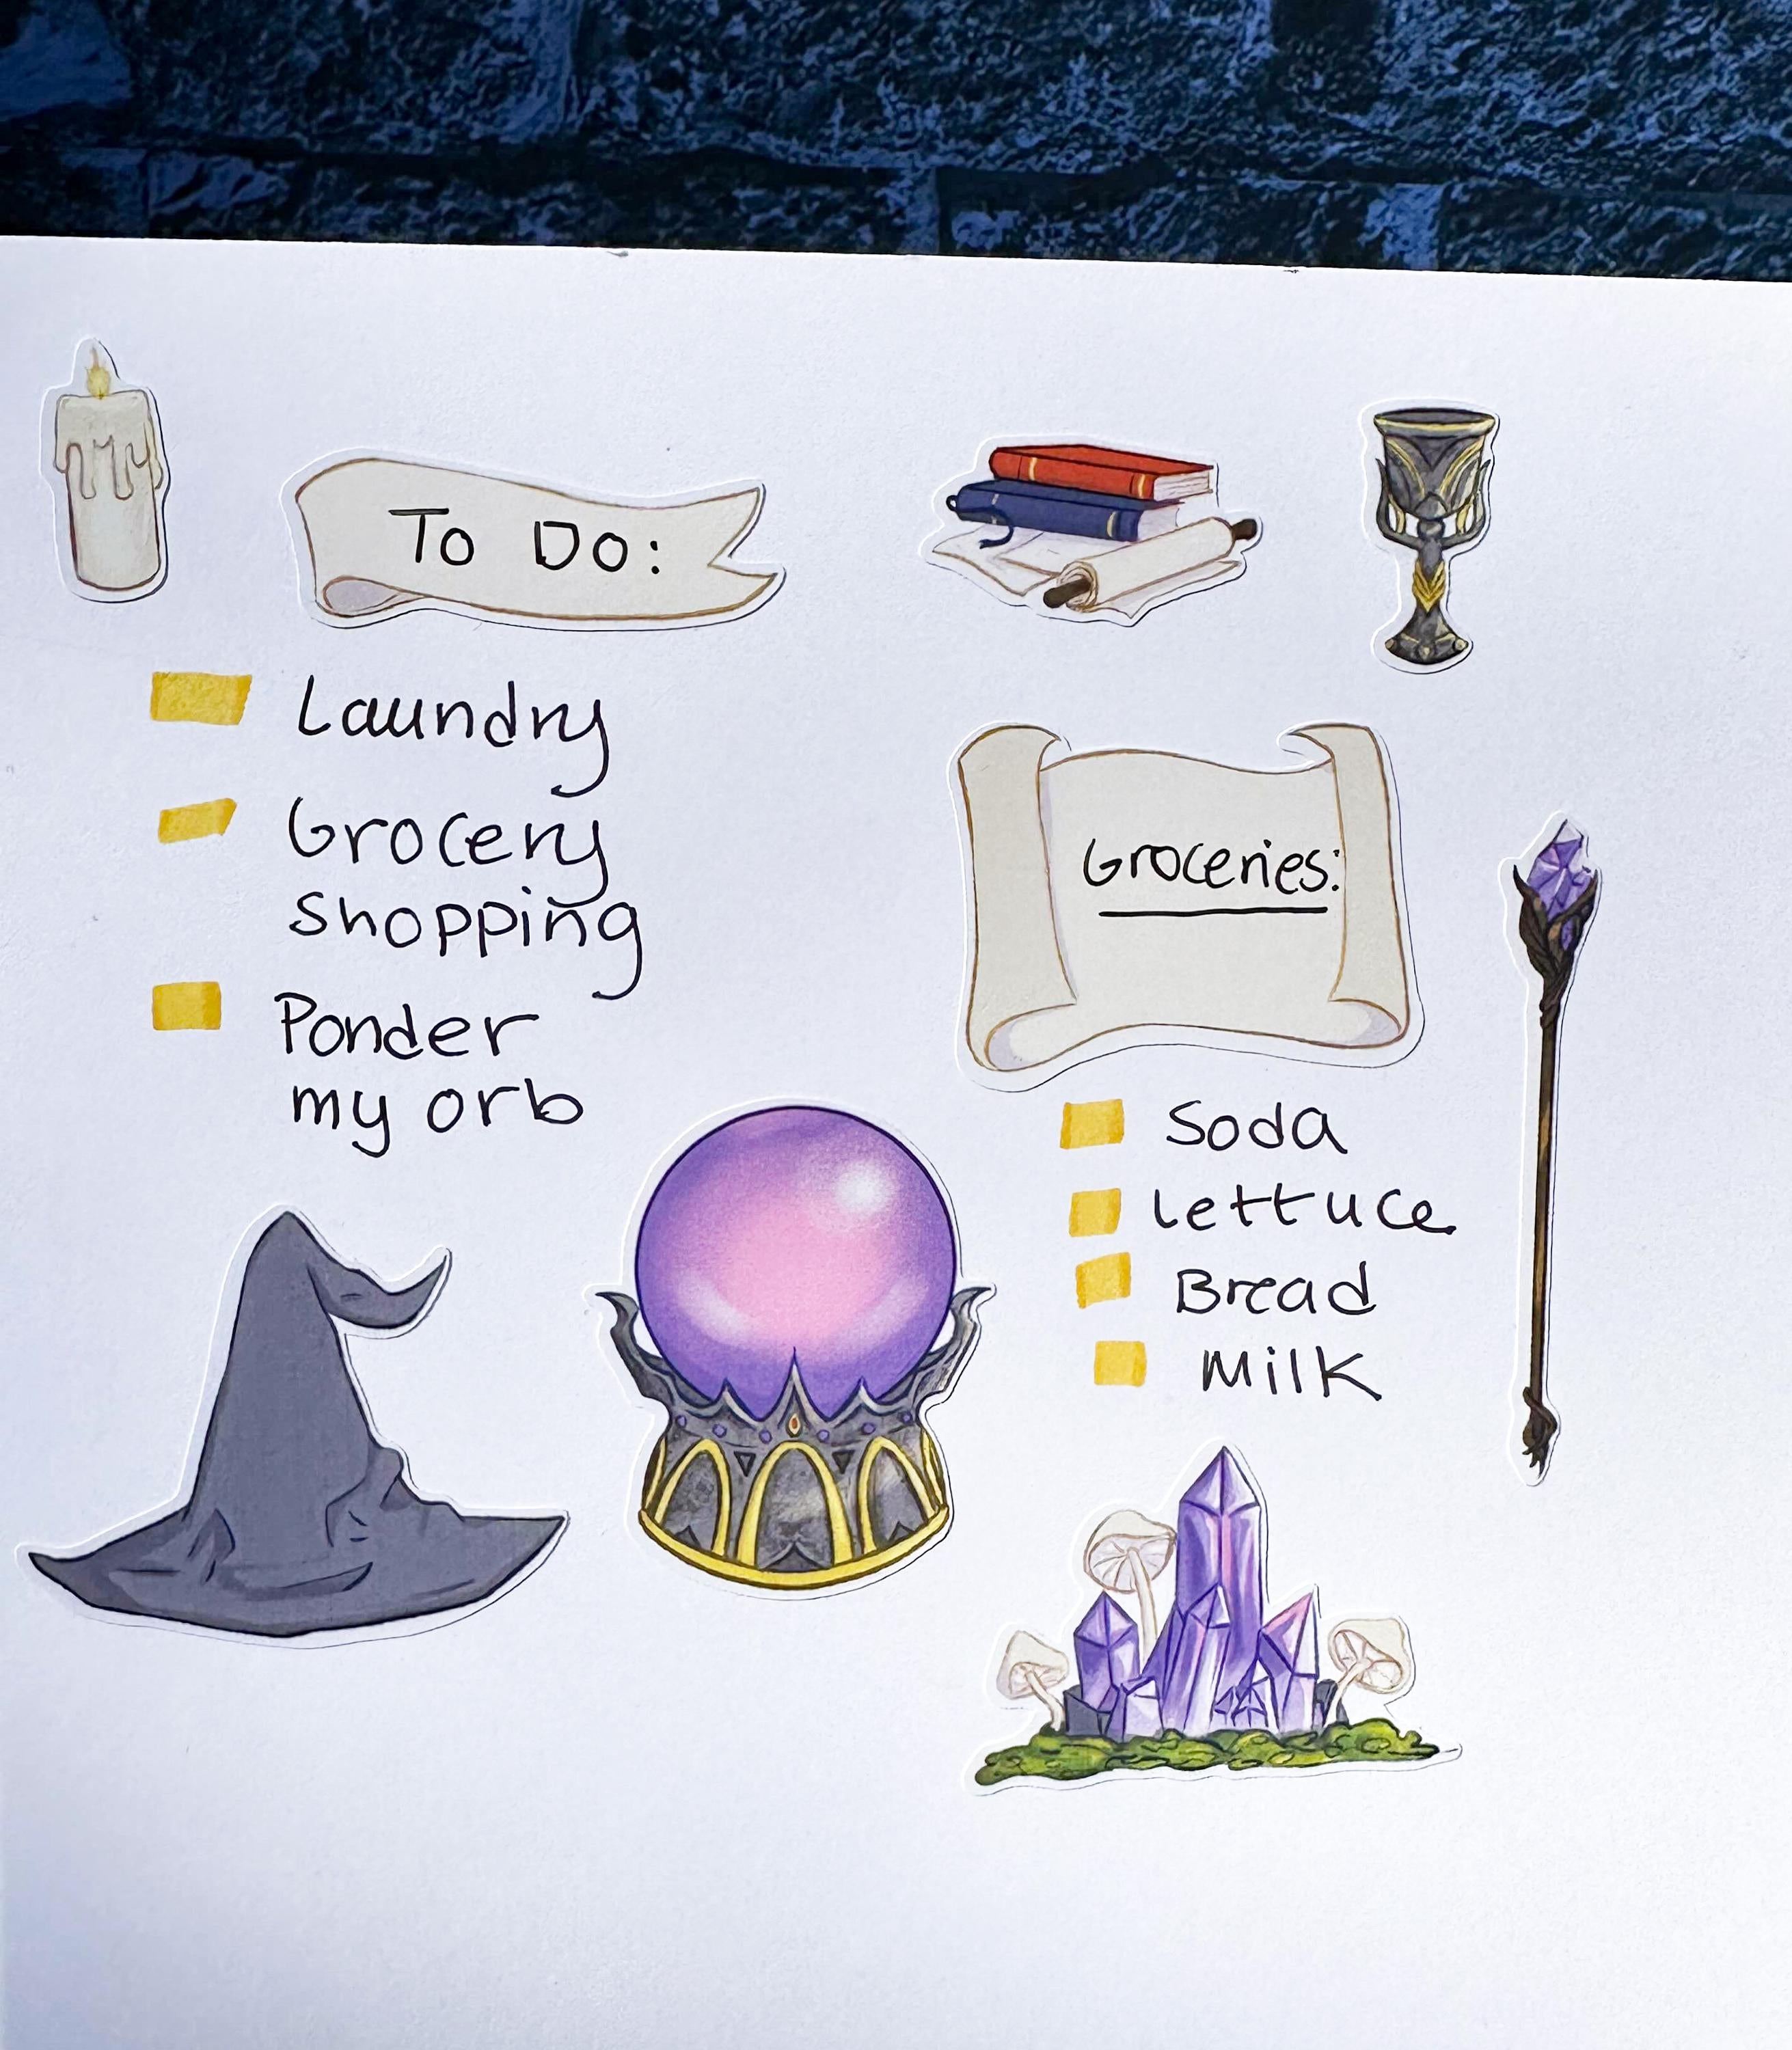 To Do:
Laundry
Grocery
shopping
Ponder
my orb
Groceries:
Soda
Lettuce
Bread
Milk